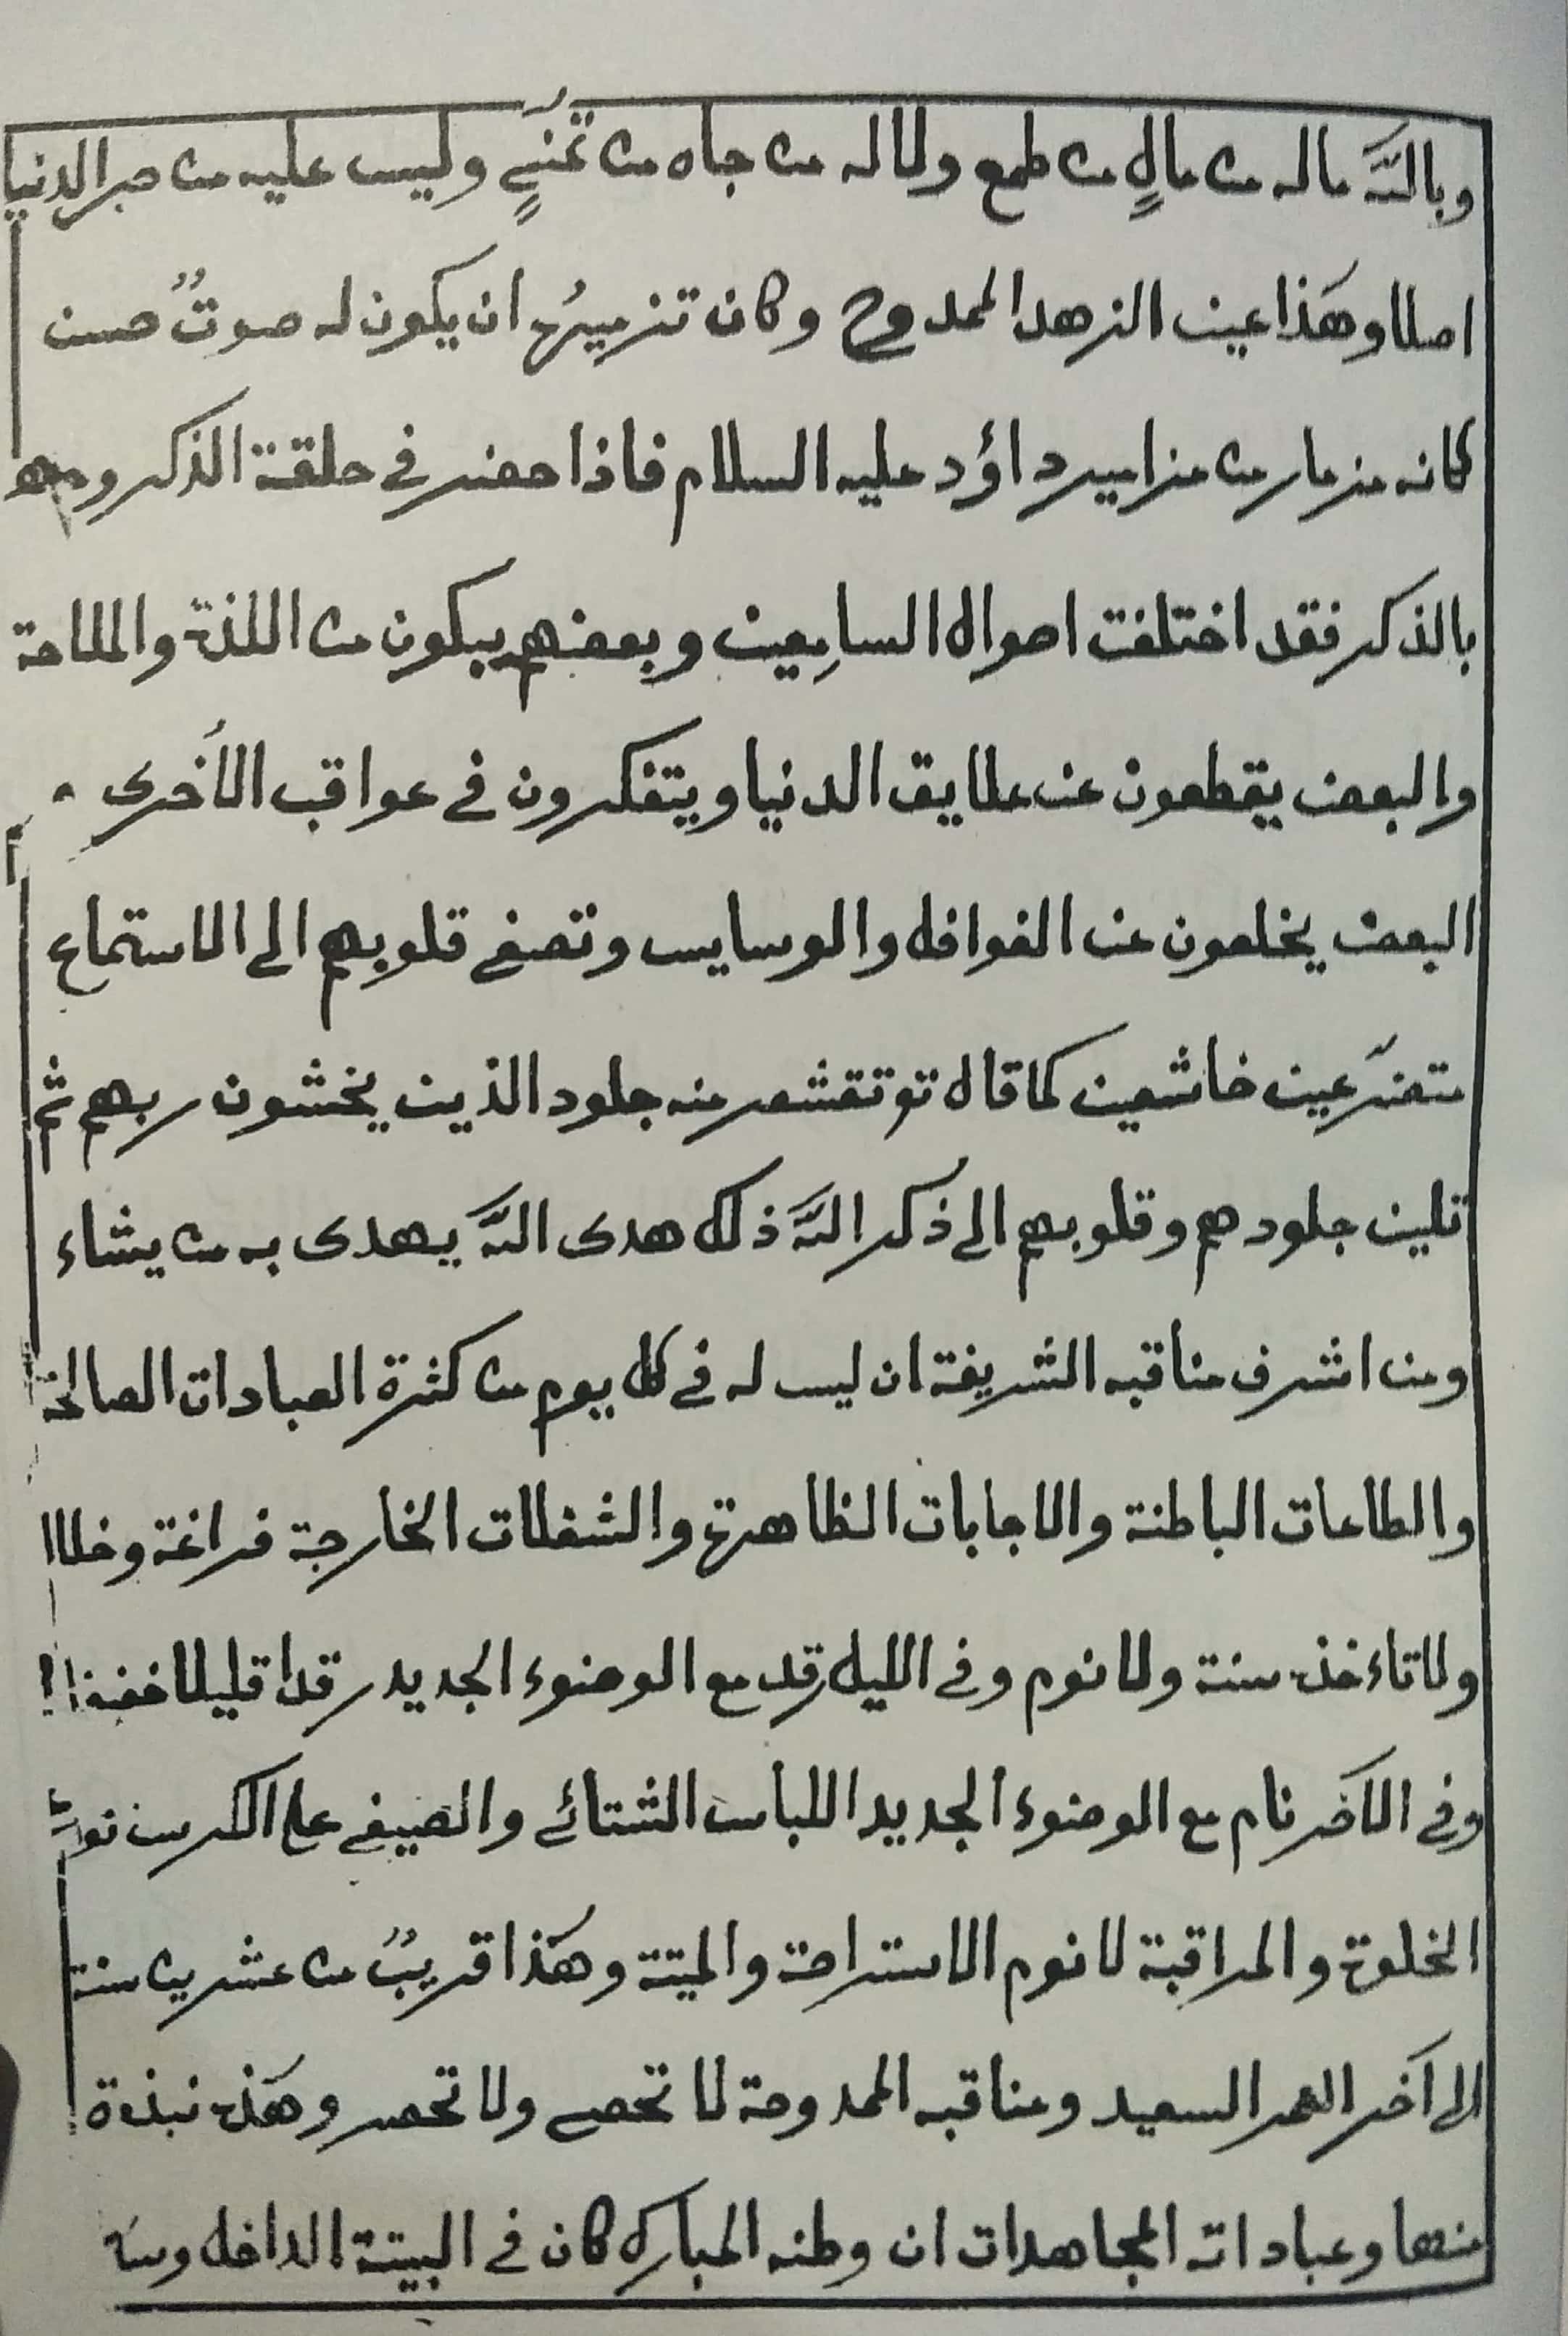 وباللّه ماله من مالٍ من طمع ولا له من جاه من تمنّيٍ وليس عليه من حبر الدنيا
اصلا وهٰذا عين الزهد الممدوح وكان تزيينُه ان يكون له صوتٌ حسن
كانه مزمار من مزامير داؤد عليه السلام فاذا حضر في حلقة الذكر
بالذكر فقد اختلفت احوال السامِعين وبعضهم يبكون من اللذة والملاحة
والبعض يقطعون عن علايق الدنيا ويتفكرون في عواقب الأخرى
البعض يخلعون عن الغوافل والوسايس وتصغى قلوبهم الى الاستماع
متضرّعين خاشعين كما قال تو تقشعر منه جلود الذين يخشون ربهم ثم
تلين جلودهم وقلوبهم الى ذكر اللّه ذلك هدى اللّه يهدى به من يشاء
ومن اشرف مناقبه الشريفة ان ليس له في كل يوم من كثرة العبادات الصالحة
والطاعات الباطنة والاجابات الظاهرة والشغلات الخارجة فراغة وخلاا
ولا تاءخذه سنة ولا نوم وفي الليل رقد مع الوضوء الجديد رقدا قليلا
وفي الآخر نام مع الوضوء الجديد اللباس الشتائي والصيفي على الكرسي
الخلوة والمراقبة لا نوم الاستراحة والميتة وهٰذا قريبٌ من عشرين سنة
الى آخر العمر السعيد ومناقبه الممدوحة لا تحصى ولا تحصر وهٰذه نبذة
منها وعباداته المجاهدات ان وطنه المبارك كان في البيتة الداخل